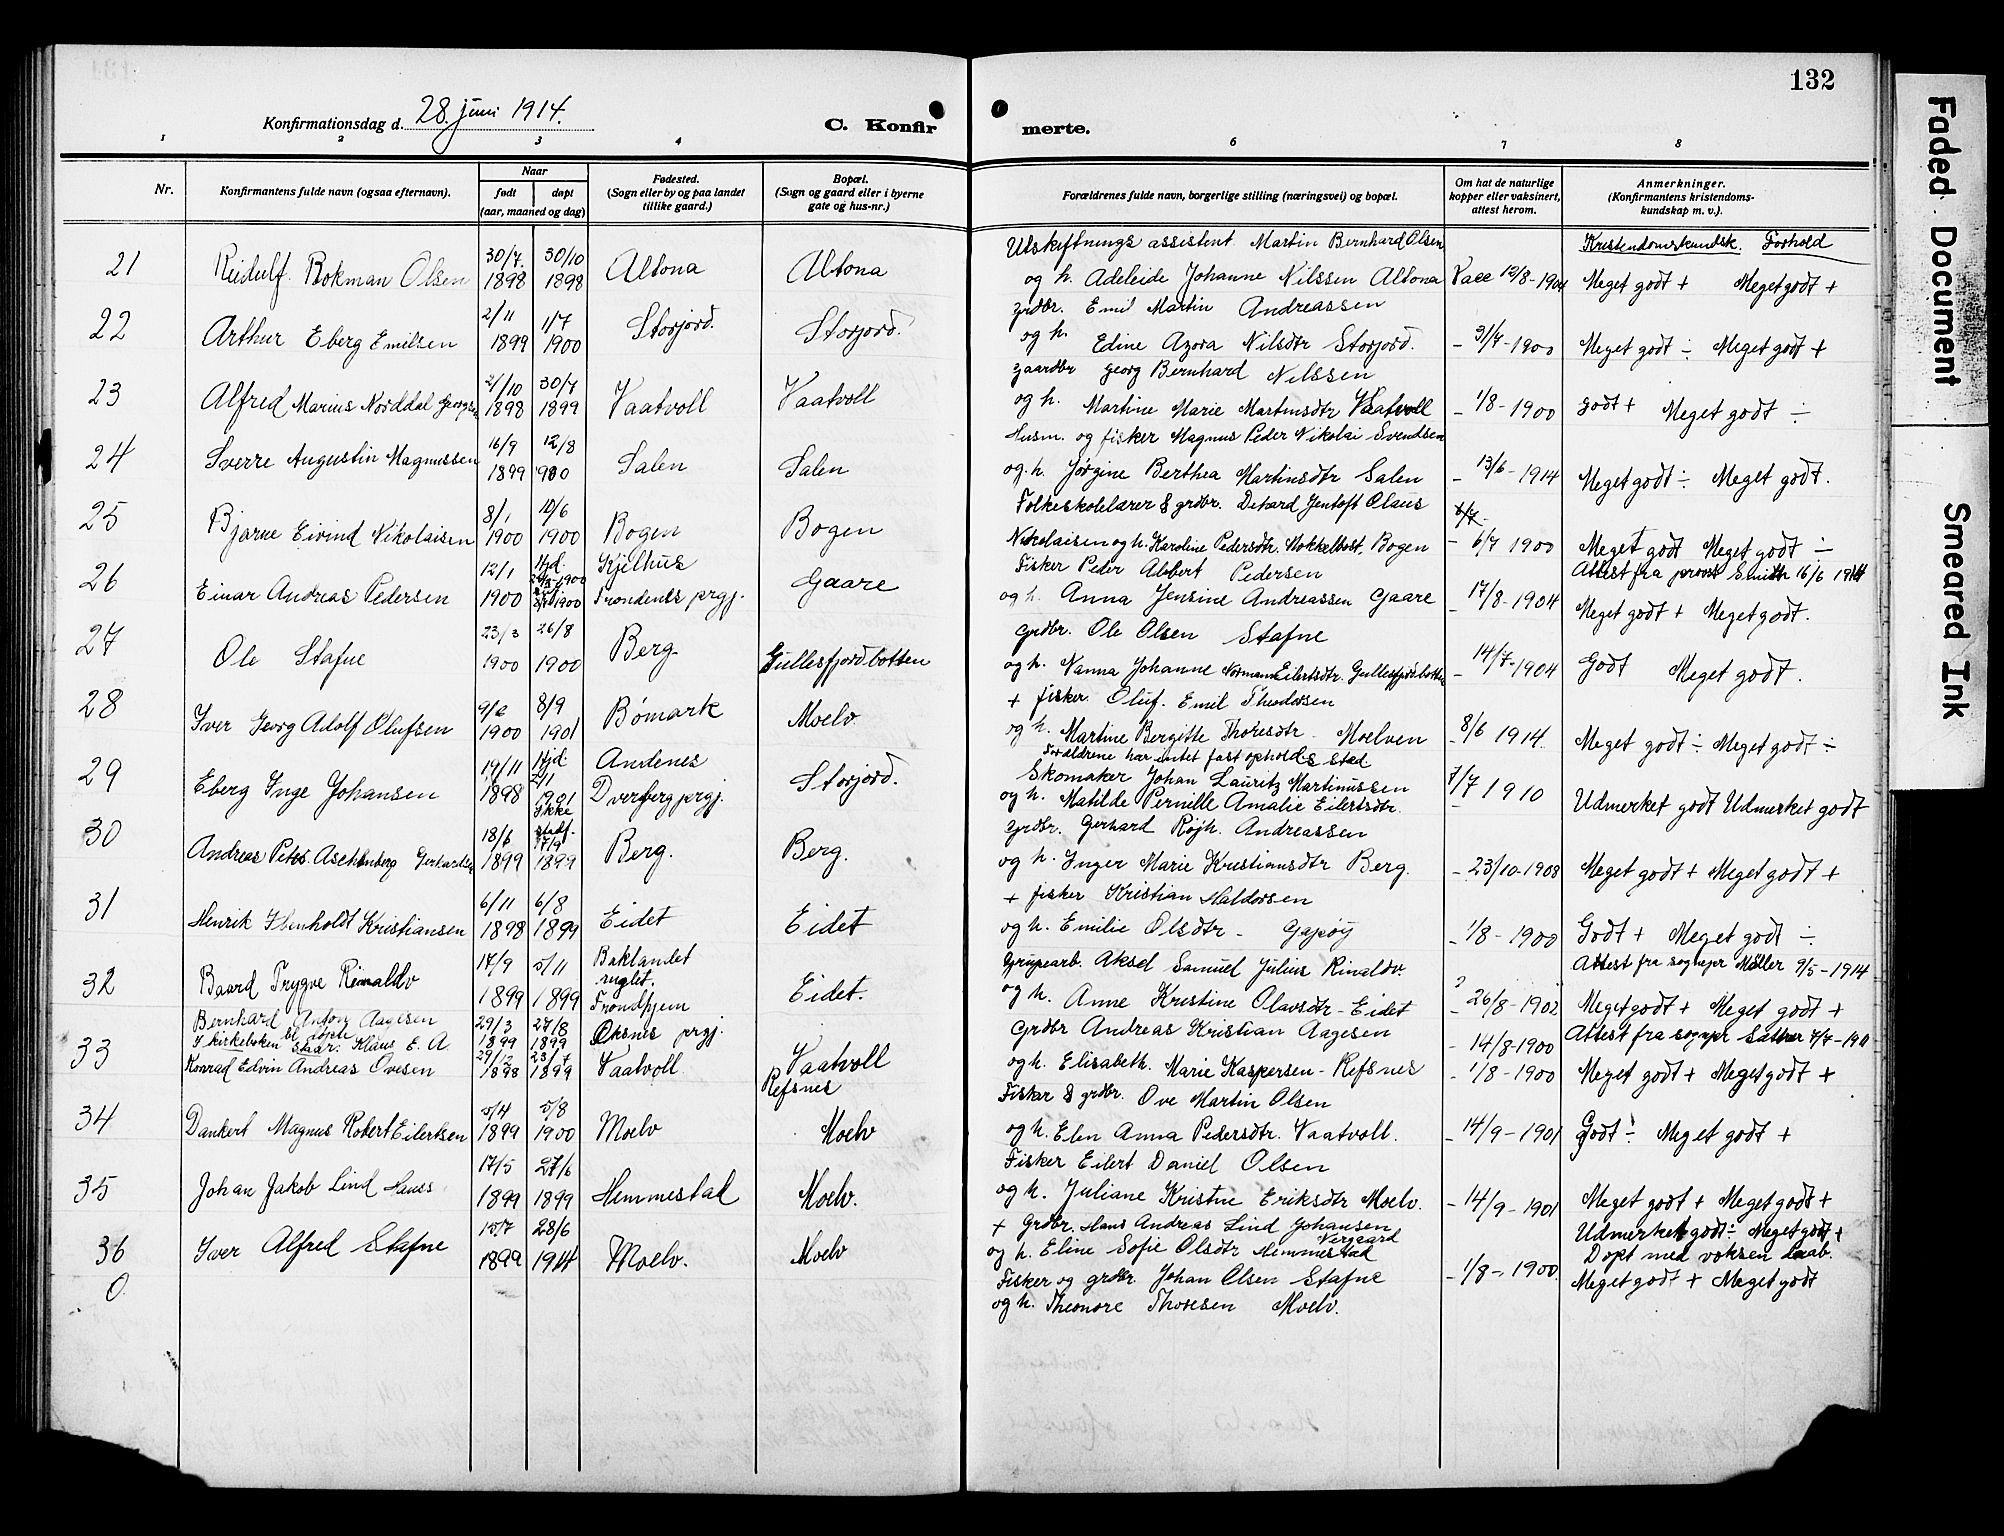 132
Konfirmationsdag d. 28. juni 1914.
C. Konfirmerte.
1 2 3 4 5 6 7 8
Nr.
Konfirmantens fulde navn (ogsaa efternavn).
Naar
født døpt
(aar, maaned og dag)
Fødested.
(Sogn eller by og paa landet
tillike gaard.)
Bopæl.
(Sogn og gaard eller i byerne
gate og hus-nr.)
Forældrenes fulde navn, borgerlige stilling (næringsvei) og bopæl.
Om hat de naturlige
kopper eller vaksinert,
attest herom.
Anmerkninger.
(Konfirmantens kristendoms-
kundskap m. v.).
Kristendomskundsk. Forhold
21 Reidulf Bokman Olsen 30/7. 1898 30/10 1898 Altona Altona
Utskiftnings assistent Martin Bernhard Olsen
og h. Adeleide Johanne Nilssen Altona Vacc 12/8-1904 Meget godt + Meget godt +
22 Arthur Eberg Emilsen 2/11 1899 1/7 1900 Storjord. Storjord.
grdbr. Emil Martin Andreassen
og h. Edine Azora Nilsdtr Storjord. - 31/7-1900 Meget godt ÷ Meget godt +
23 Alfred Marius Norddal Georgsen 2/10 1898 30/7 1899 Vaatvoll Vaatvoll
gaardbr Georg Bernhard Nilssen
og h. Martine Marie Martinsdtr Vaatvoll - 1/8-1900 godt + Meget godt ÷
24 Sverre Augustin Magnussen 16/9 1899 12/8 1900 Salen Salen
Husm. og fisker Magnus Peder Nikolai Svendsen
og h. Jørgine Berthea Martinsdtr Salen - 13/6-1914 Meget godt ÷ Meget godt.
25 Bjarne Eivind Nikolaisen 8/1 1900 10/6 1900 Bogen Bogen
Folkeskolelærer & grdbr. Dethard Jentoft Olaus
Nikolaisen og h. Karoline Pedersdtr. Stokkelbost, Bogen - 6/7 1900 Meget godt Meget godt ÷
26 Einar Andreas Pedersen 12/1 1900 Hjd. 1900 Kjelhus Trondenes prgj. Gaare
Fisker Peder Albert Pedersen
og h. Anna Jensine Andreassen Gaare - 17/8-1904
Attest fra provst Smith 16/6 1914
Meget godt + Meget godt.
27 Ole Stafne 23/3 1900 26/8 1900 Berg. Gullesfjordbotten
Grdbr. Ole Olsen Stafne
og h. Nanna Johanne Normann Eilertsdtr. Gullesfjordbotten - 14/7-1904 Godt Meget godt.
28 Iver Georg Adolf Olufsen 9/6 1900 8/9 1901 Bømark Moelv
+ fisker Oluf Emil Theodorsen
og h. Martine Bergitte Thoresdtr. Moelven - 8/6 1914. Meget godt ÷ Meget godt ÷
29 Eberg Inge Johansen 19/11 1898 Hjd. 2/1 1901 Ikke stadf. Andenes Dverberg prgj. Storjord.
Forældrene har intet fast opholds sted
Skomaker Johan Lauritz Martinussen
og h. Matilde Pernille Amalie Eilertsdtr. 7/7 1910 Udmerket godt Udmerket godt
30 Andreas Peter Aschenberg Gerhardsen 18/6 1899 17/9 1899 Berg. Berg.
Grdbr. Gerhard Røjh. Andreassen
og h. Inger Marie Kristiansdtr Berg. - 23/10-1908 Meget godt + Meget godt +
31 Henrik Ibenholdt Kristiansen 6/11 1898 6/8 1899 Eidet Eidet
+ fisker Kristian Haldorsen
og h. Emilie Olsdtr - Gapøy - 1/8-1900 Godt + Meget godt ÷
32 Baard Trygve Rinaldo 17/9 1899 5/11 1899 Baklandet Trondhjem Eidet.
Grupearb. Aksel Samuel Julius Rinaldo.
og h. Anne Kristine Olavsdtr - Eidet - 26/8-1902
Attest fra sognepr Møller 9/5-1914
Meget godt + Meget godt +
Bernhard Anton Aagesen 29/3 1899 27/8 1899 Øksnes prgj. Refsnes
I kirkeboken staar: Klaus E. A.
Grdbr Andreas Kristian Aagesen
og h. Elisabeth Marie Kaspersen - Refsnes - 14/8-1900
Attest fra sognepr Sæther 7/7-1911
Meget godt + Meget godt +
33 Konrad Edvin Andreas Ovesen 29/12 1898 23/7 1899 Vaatvoll Vaatvoll
Fisker & grdbr. Ove Martin Olsen
og h. Elen Anna Pedersdtr. Vaatvoll. - 1/8-1900 Godt ÷ Meget godt +
34 Dankert Magnus Robert Eilertsen 5/4 1899 5/8 1900 Moelv Moelv
Fisker Eilert Daniel Olsen
og h. Juliane Kristine Eriksdtr Moelv. - 14/9-1901 Meget godt + Meget godt +
35 Johan Jakob Lind Hans. 17/5 1899 27/6 1899 Hemmestad Moelv.
+ Grdbr. Hans Andreas Lind Johansen
og h. Eline Sofie Olsdtr Hemmestad - 14/9-1901 Udmerket godt ÷ Meget godt +
36 Iver Alfred Stafne 15/7 1899 28/6 1914 Moelv. Moelv
Fisker og grdbr Johan Olsen Stafne
og h. Theonore Thoresen Moelv. - 1/8-1900.
Døpt med voksen daab.
Meget godt + Meget godt
0
Faded Document
Smeared Ink